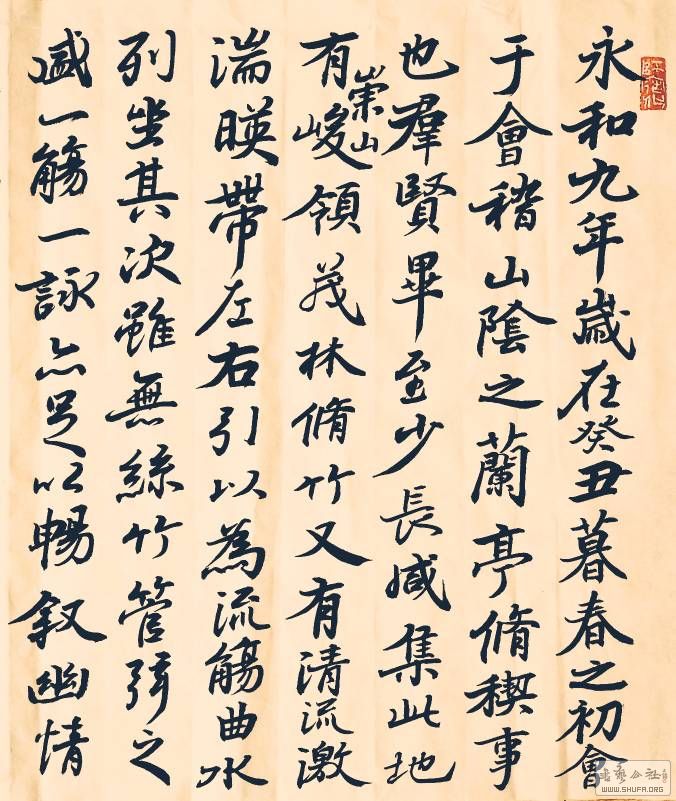 永和九年歲在癸丑暮春之初會
于會稽山陰之蘭亭脩稧事
也群賢畢至少長咸集此地
有崇山峻領茂林脩竹又有清流激
湍暎帶左右引以為流觴曲水
列坐其次雖無絲竹管弦之
盛一觴一詠亦足以暢敘幽情
WWW.SHUFA.ORG